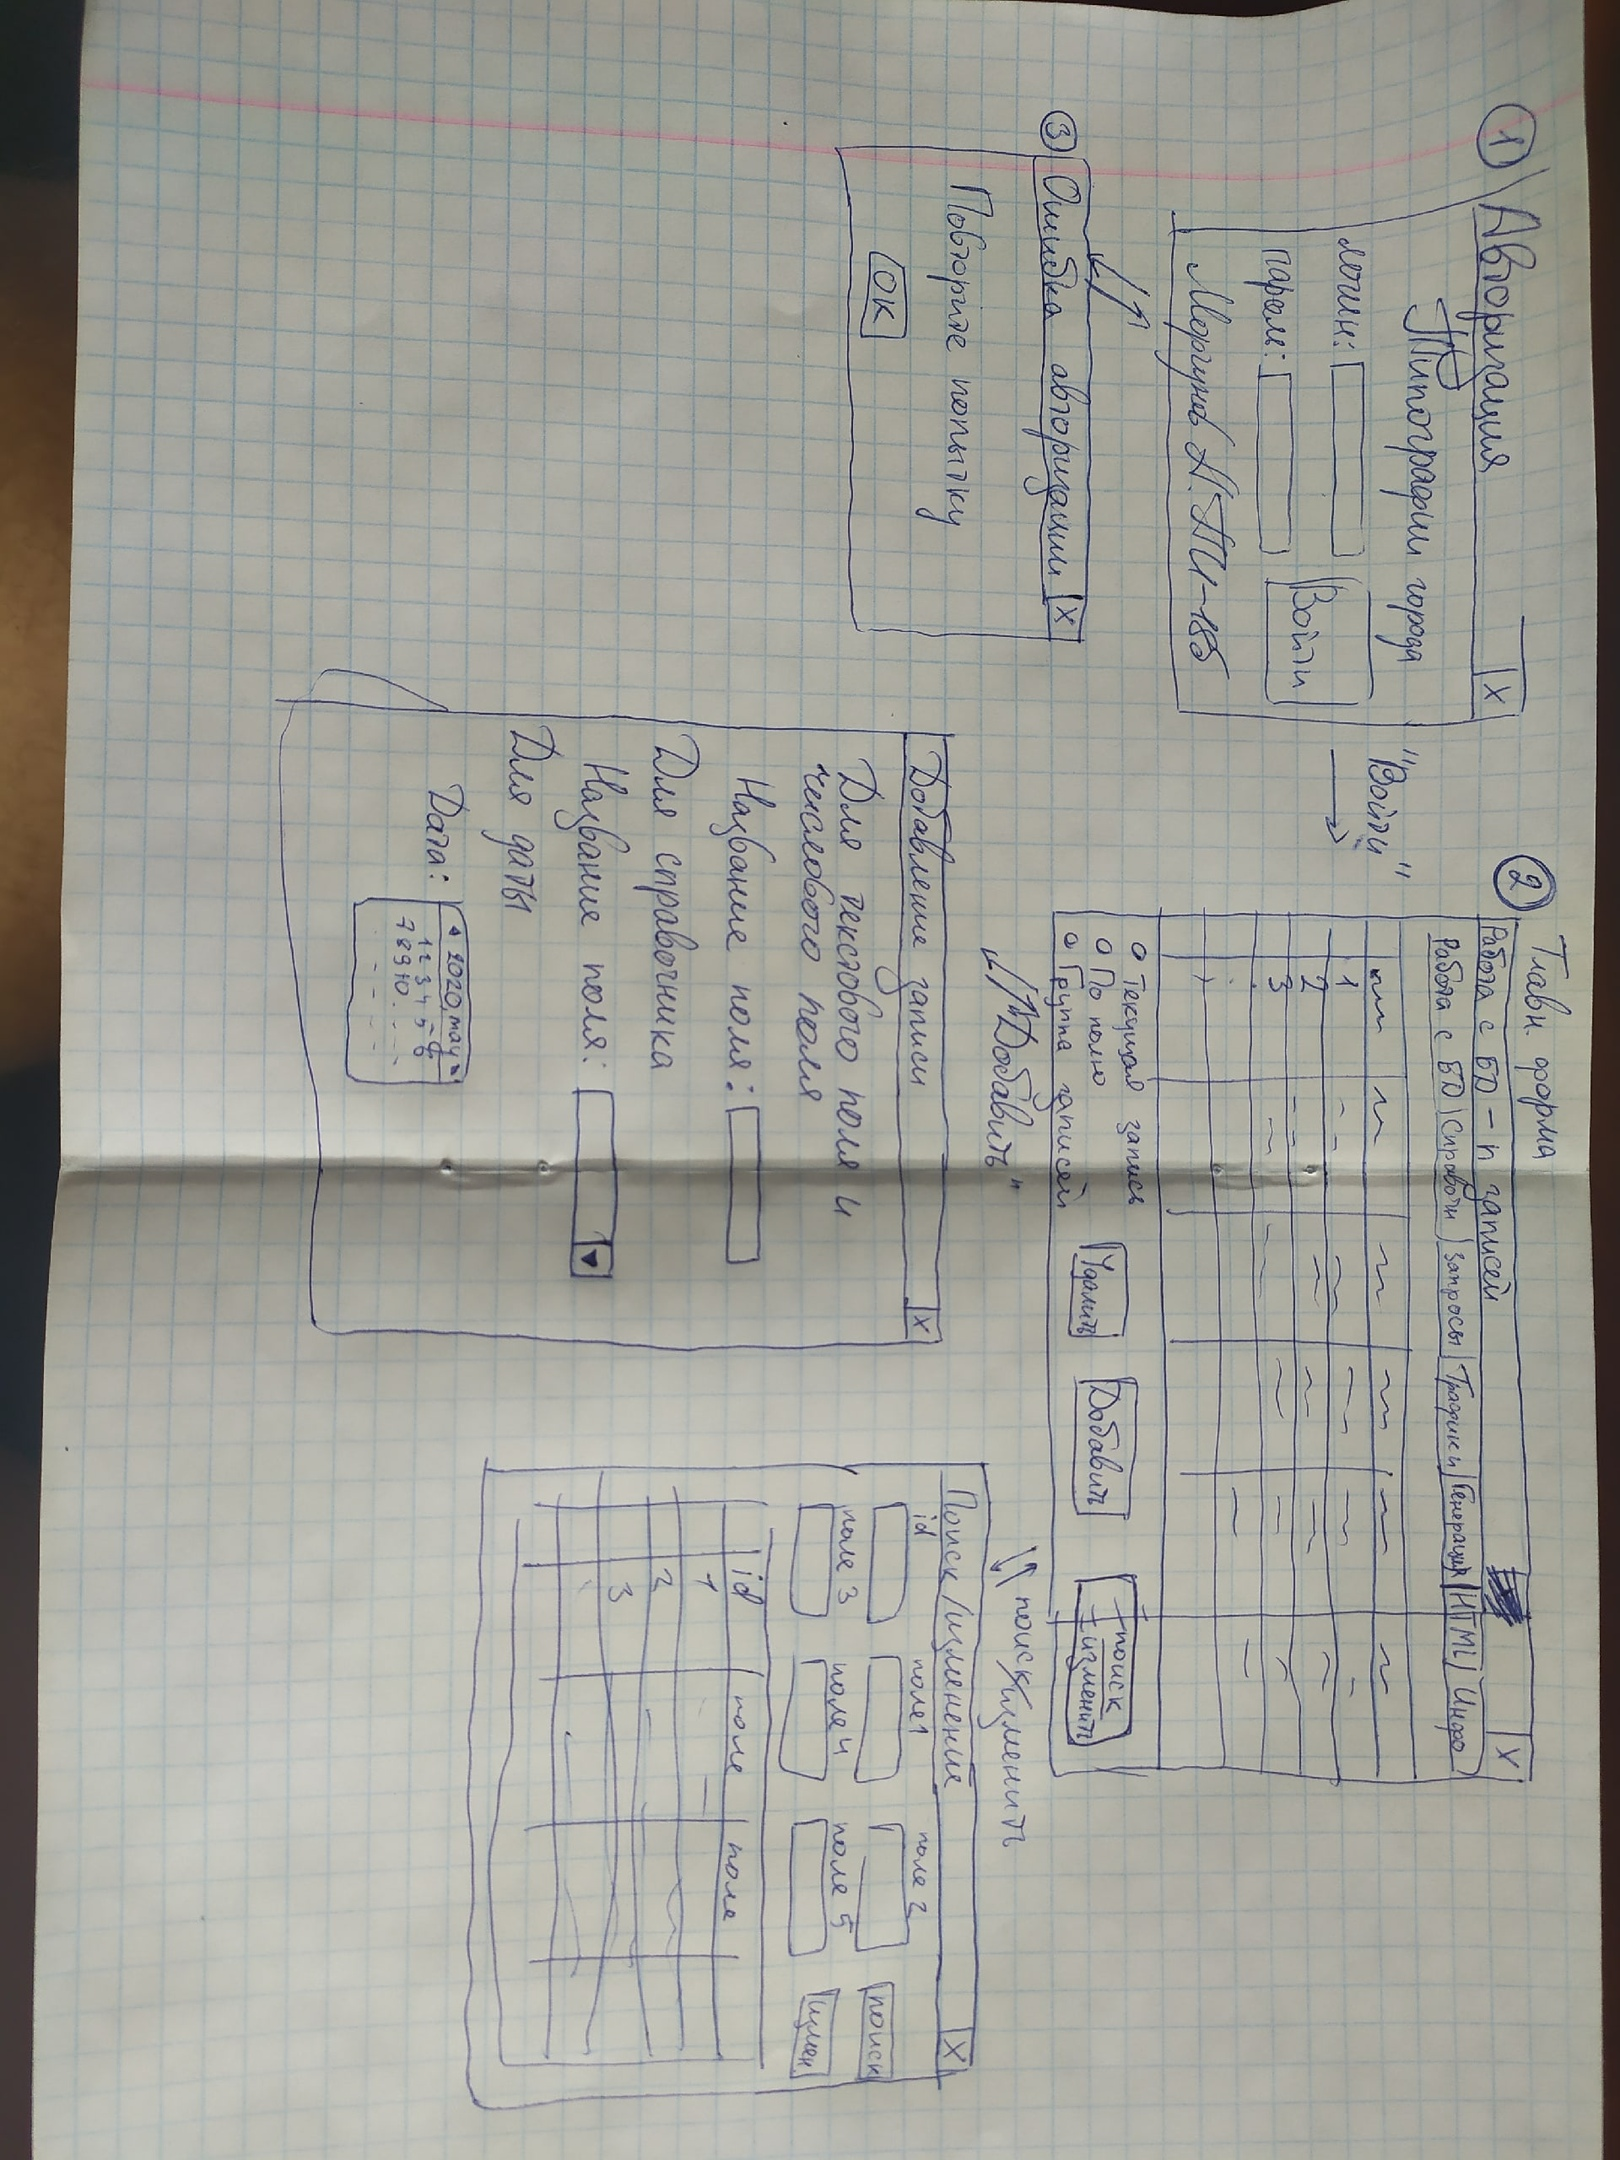 1
Авторизация
X
Типографии города
логин:
парол:
Войти
Моргунов А. ПИ-18б
"Войти"
3
Ошибка авторизации
X
Повторите попытку
OK
2
Главн. форма
Работа с БД - n записей
X
Работа с БД
Справочн
Запросы
Графики
Генерация
HTML
Инфо
1
2
3
Текущая запись
По полю
Группа записей
Удалить
Добавить
поиск
изменить
"Добавить"
Добавление записи
X
Для текстового поля и
числового поля
Название поля:
Для справочника
Название поля:
Для даты
Дата:
2020, may
1 2 3 4 5 6
7 8 9 10 . . .
поиск/изменить
Поиск/изменение
X
id
поле1
поле 2
поиск
поле 3
поле 4
поле 5
измен
id
поле
поле
1
2
3